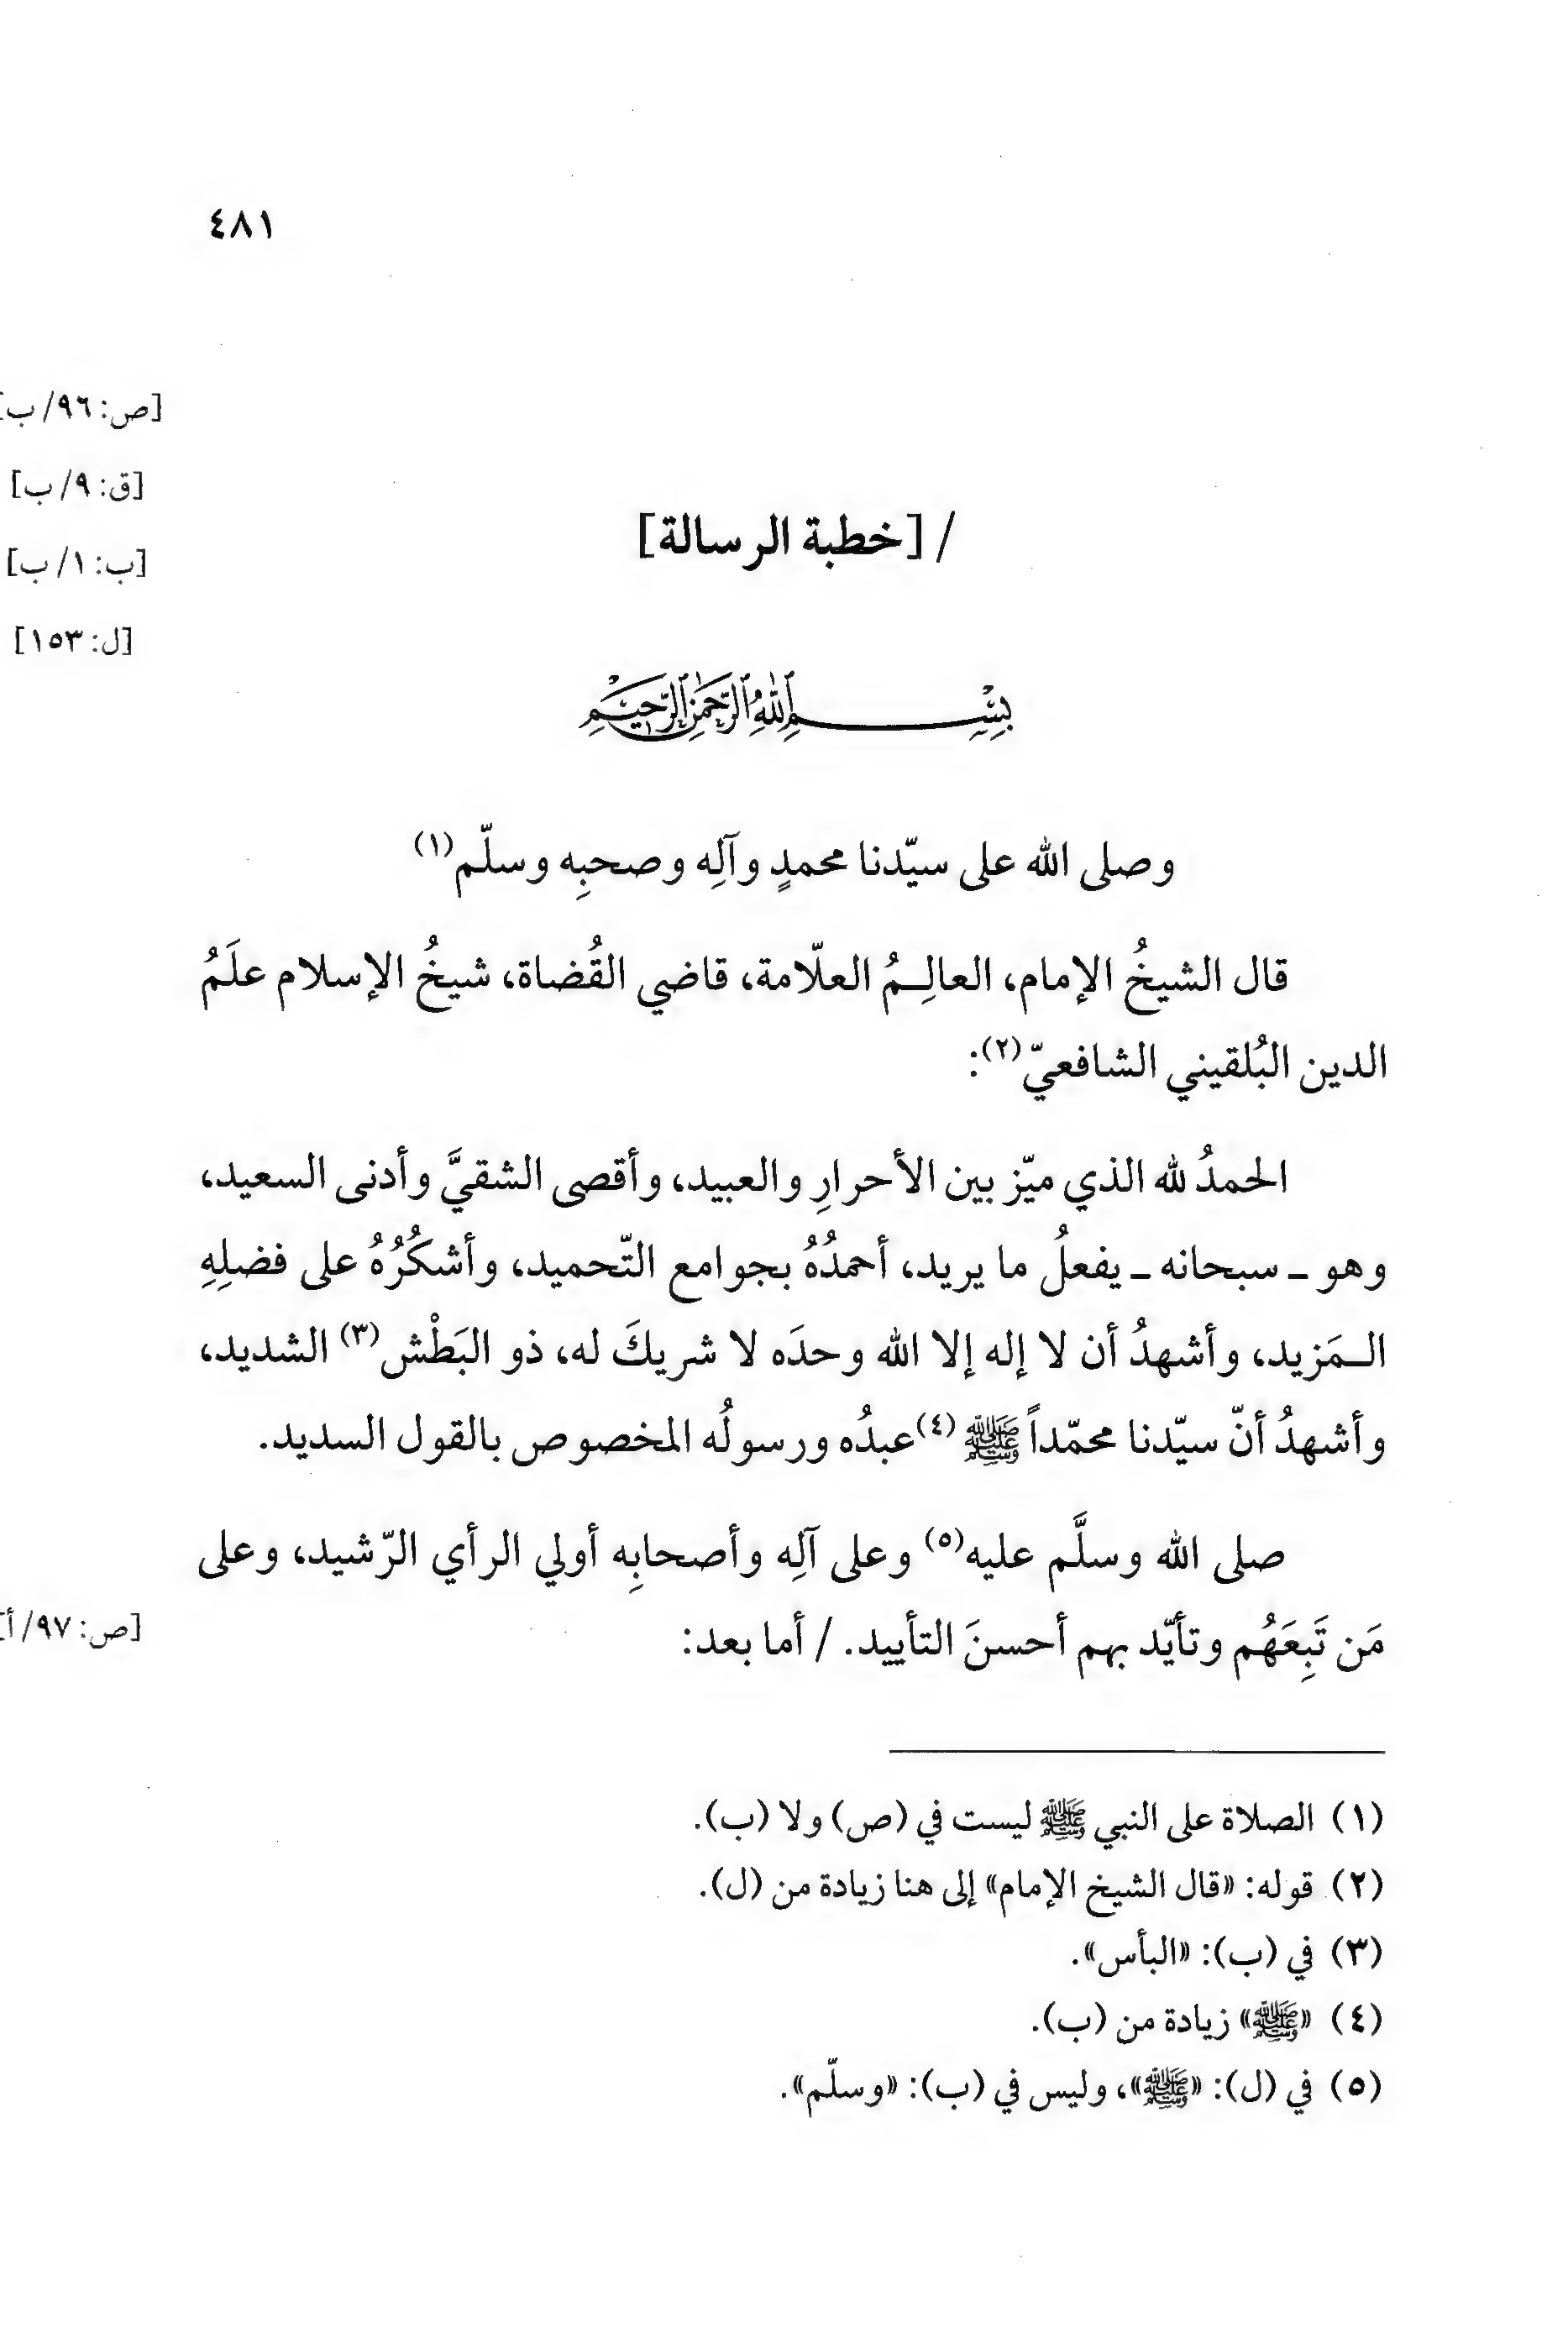 ٤٨١
[ص: ٩٦/ ب]
[ق: ٩/ ب]
/ [خطبة الرسالة]
[ب: ١/ ب]
[ل: ١٥٣]
بِسْمِ ٱللَّهِ ٱلرَّحْمَٰنِ ٱلرَّحِيمِ
وصلى الله على سيّدنا محمدٍ وآلِه وصحبِه وسلّم(١)
قال الشيخُ الإمام، العالِـمُ العلّامة، قاضي القُضاة، شيخُ الإسلام علَمُ
الدين البُلقيني الشافعيّ(٢):
الحمدُ لله الذي ميّز بين الأحرارِ والعبيد، وأقصى الشقيَّ وأدنى السعيد،
وهو ـ سبحانه ـ يفعلُ ما يريد، أحمدُهُ بجوامع التّحميد، وأشكُرُهُ على فضلِهِ
الـمَزيد، وأشهدُ أن لا إله إلا الله وحدَه لا شريكَ له، ذو البَطْش(٣) الشديد،
وأشهدُ أنّ سيّدنا محمّداً ﷺ(٤) عبدُه ورسولُه المخصوص بالقول السديد.
صلى الله وسلَّم عليه(٥) وعلى آلِه وأصحابِه أولي الرأي الرّشيد، وعلى
مَن تَبِعَهُم وتأيّد بهم أحسنَ التأييد. / أما بعد:
[ص: ٩٧/ أ]
(١) الصلاة على النبي ﷺ ليست في (ص) ولا (ب).
(٢) قوله: «قال الشيخ الإمام» إلى هنا زيادة من (ل).
(٣) في (ب): «البأس».
(٤) «ﷺ» زيادة من (ب).
(٥) في (ل): «ﷺ»، وليس في (ب): «وسلّم».